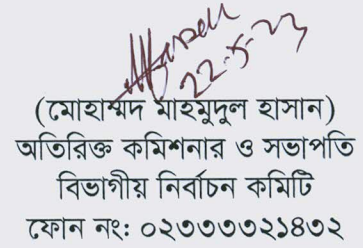 22-5-23
(মোহাম্মদ মাহমুদুল হাসান)
অতিরিক্ত কমিশনার ও সভাপতি
বিভাগীয় নির্বাচন কমিটি
ফোন নং: ০২৩৩৩৩২১৪৩২